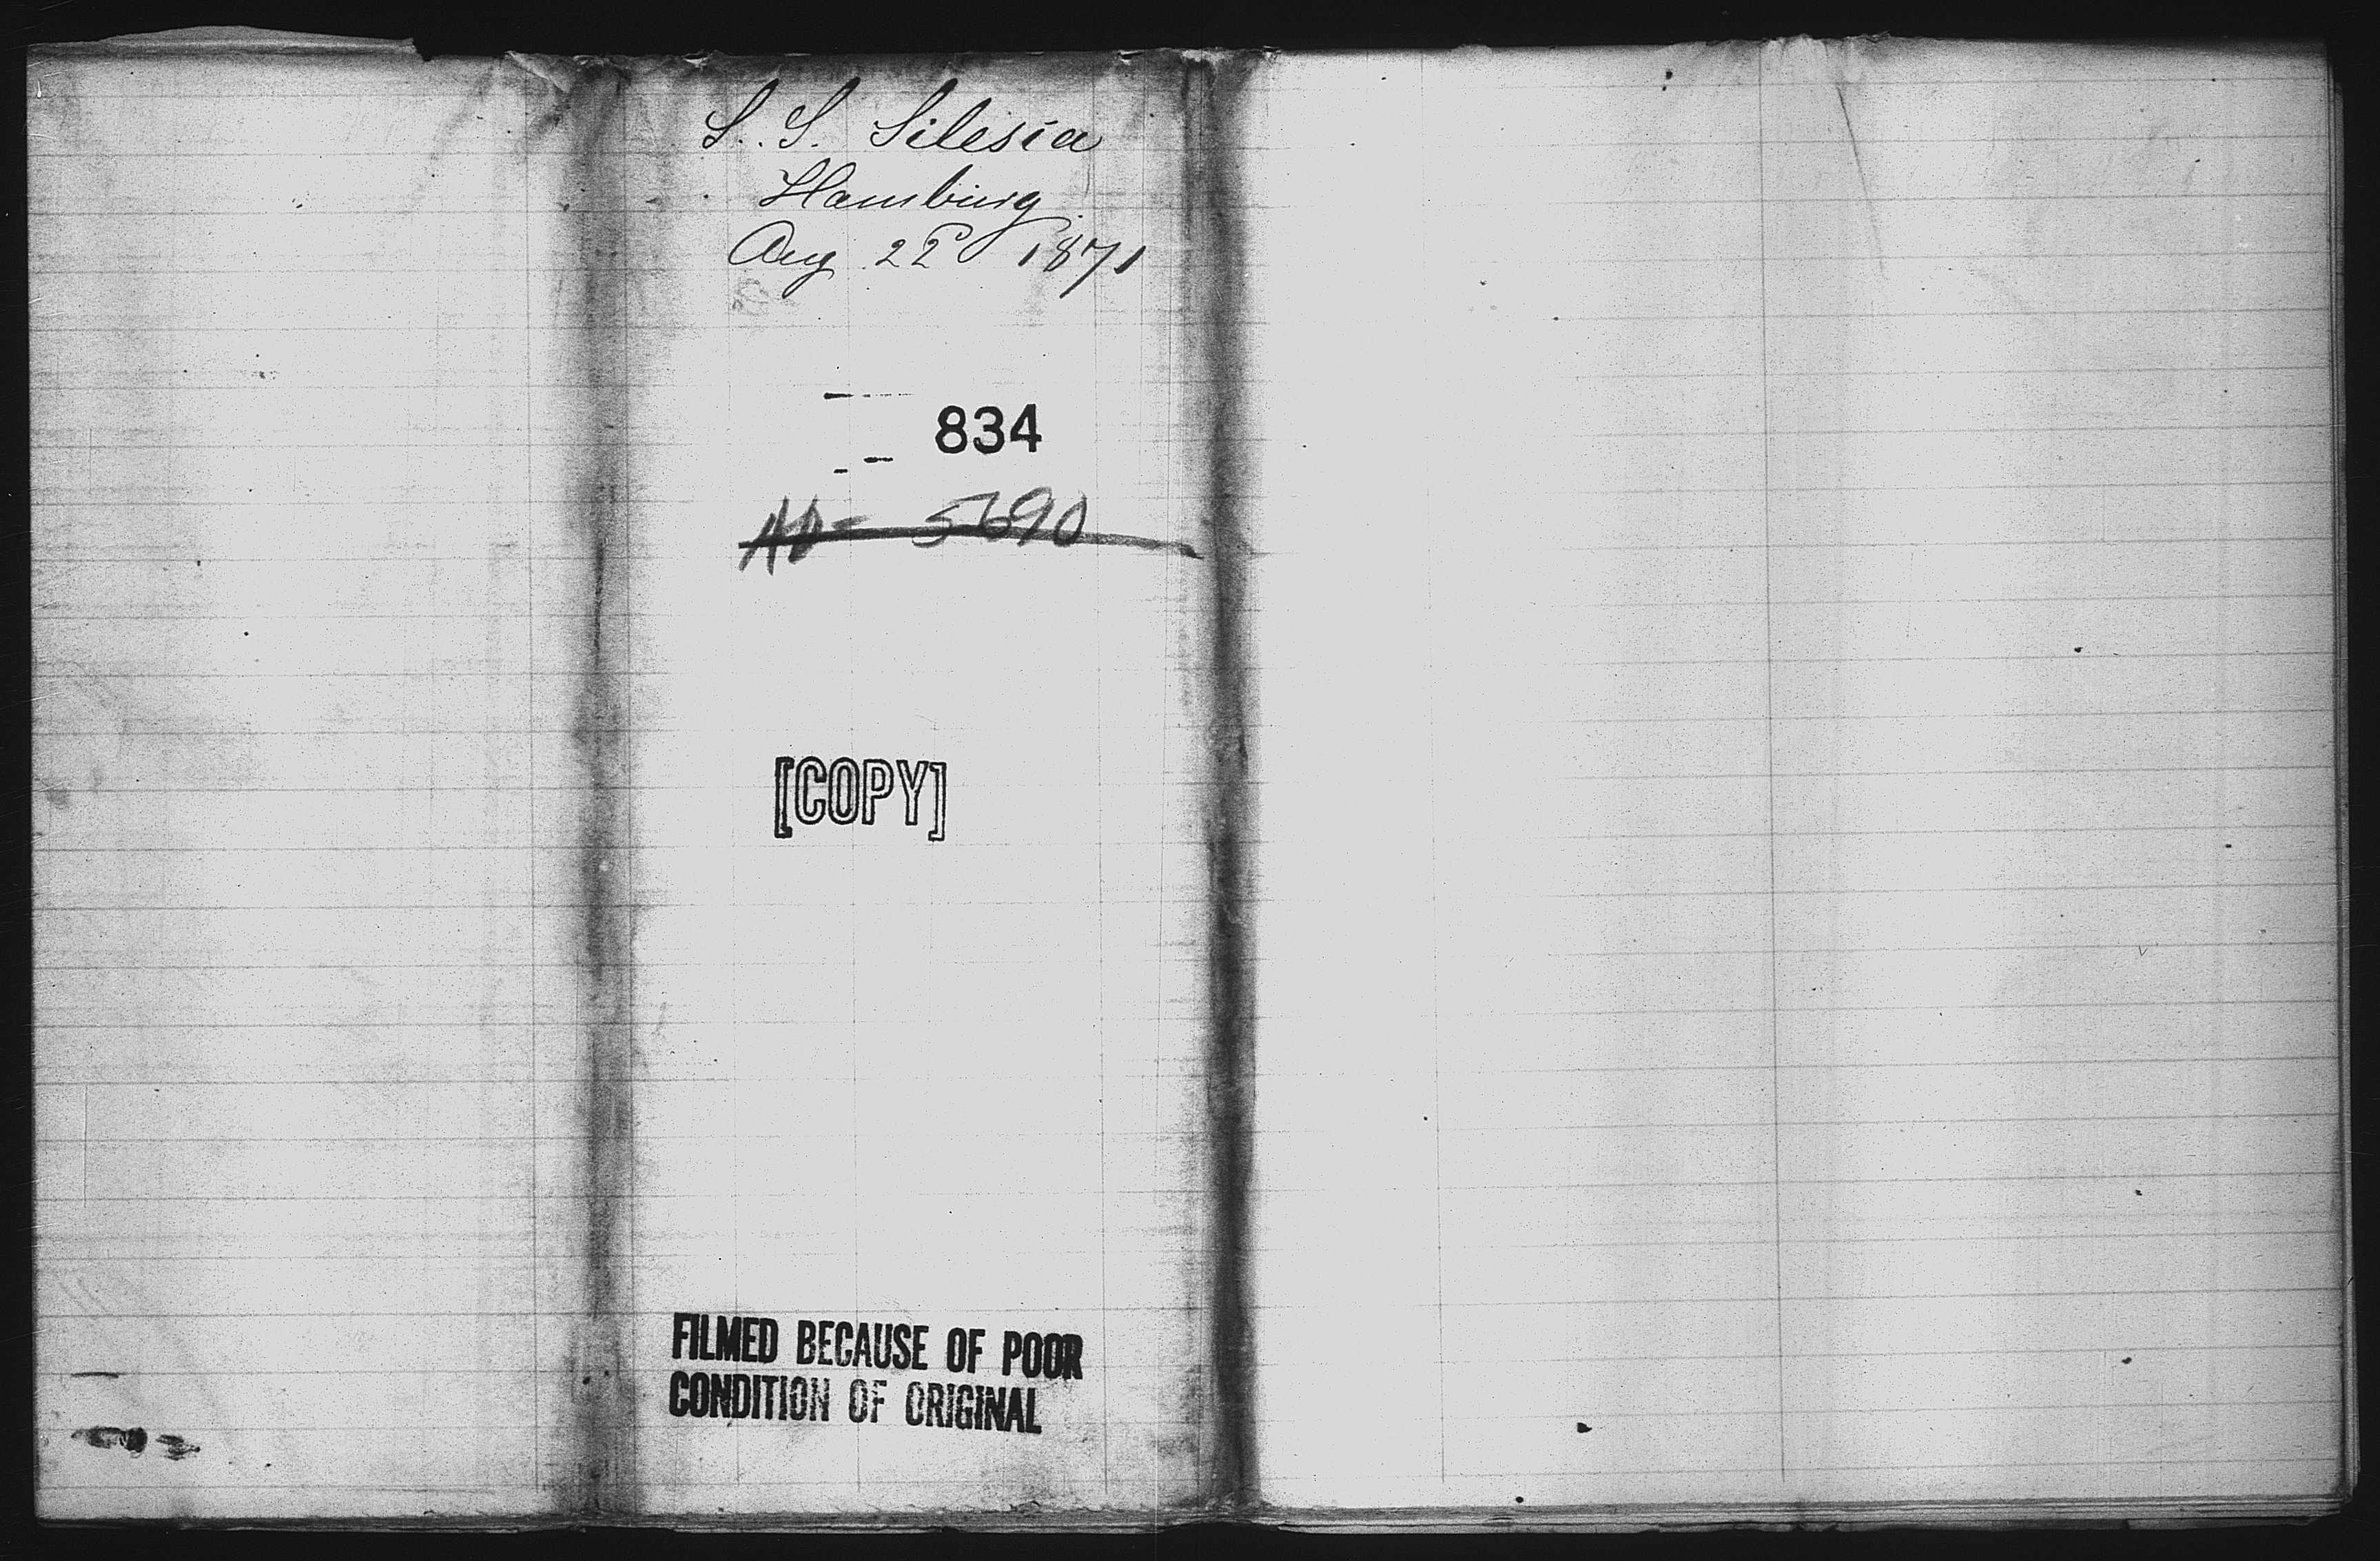 S.S. Silesia
Hamburg
Aug 22d 1871
834
5690
[COPY]
FILMED BECAUSE OF POOR
CONDITION OF ORIGINAL